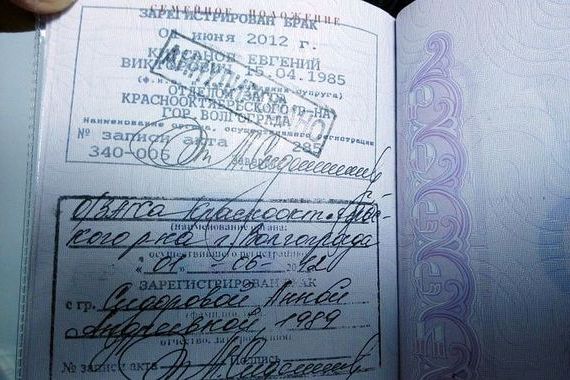 СЕМЕЙНОЕ ПОЛОЖЕНИЕ
ЗАРЕГИСТРИРОВАН БРАК
01 июня 2012 г.
ЕВГЕНИЙ
15.04.1985
(ф.и. супруга)
ОТДЕЛОМ
КРАСНООКТЯБРЬСКОГО Р-НА
ГОР. ВОЛГОГРАДА
Наименование органа, осуществившего регистрации
№ записи акта 285
340-006
О/ЗАГСа Краснооктябрьс-
кого р-на г. Волгограда
(наименование органа:
осуществившего регистрацию)
"01" - 06 - 2012
ЗАРЕГИСТРИРОВАН БРАК
с гр. Сидоровой Анной
Андреевной, 1989
отчество, дата рождения
№ записи акта Подпись